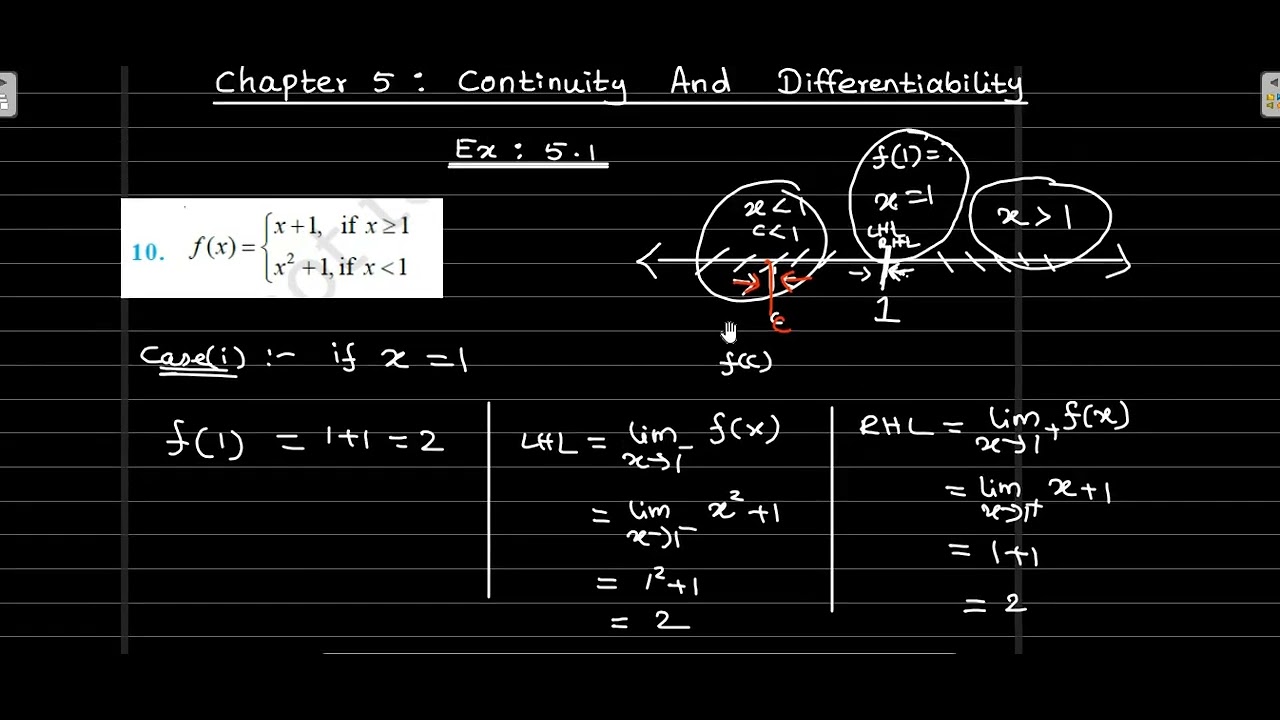 Chapter 5 : Continuity And Differentiability
Ex : 5.1
10. f(x) = { x+1, if x ≥ 1
x² +1, if x < 1
x < 1
c < 1
f(1) = ?
x = 1
LHL
RHL
x > 1
c
1
f(c)
Case(i) :- if x = 1
f(1) = 1+1 = 2
LHL = lim x→1⁻ f(x)
= lim x→1⁻ x² + 1
= 1² + 1
= 2
RHL = lim x→1⁺ f(x)
= lim x→1⁺ x + 1
= 1+1
= 2